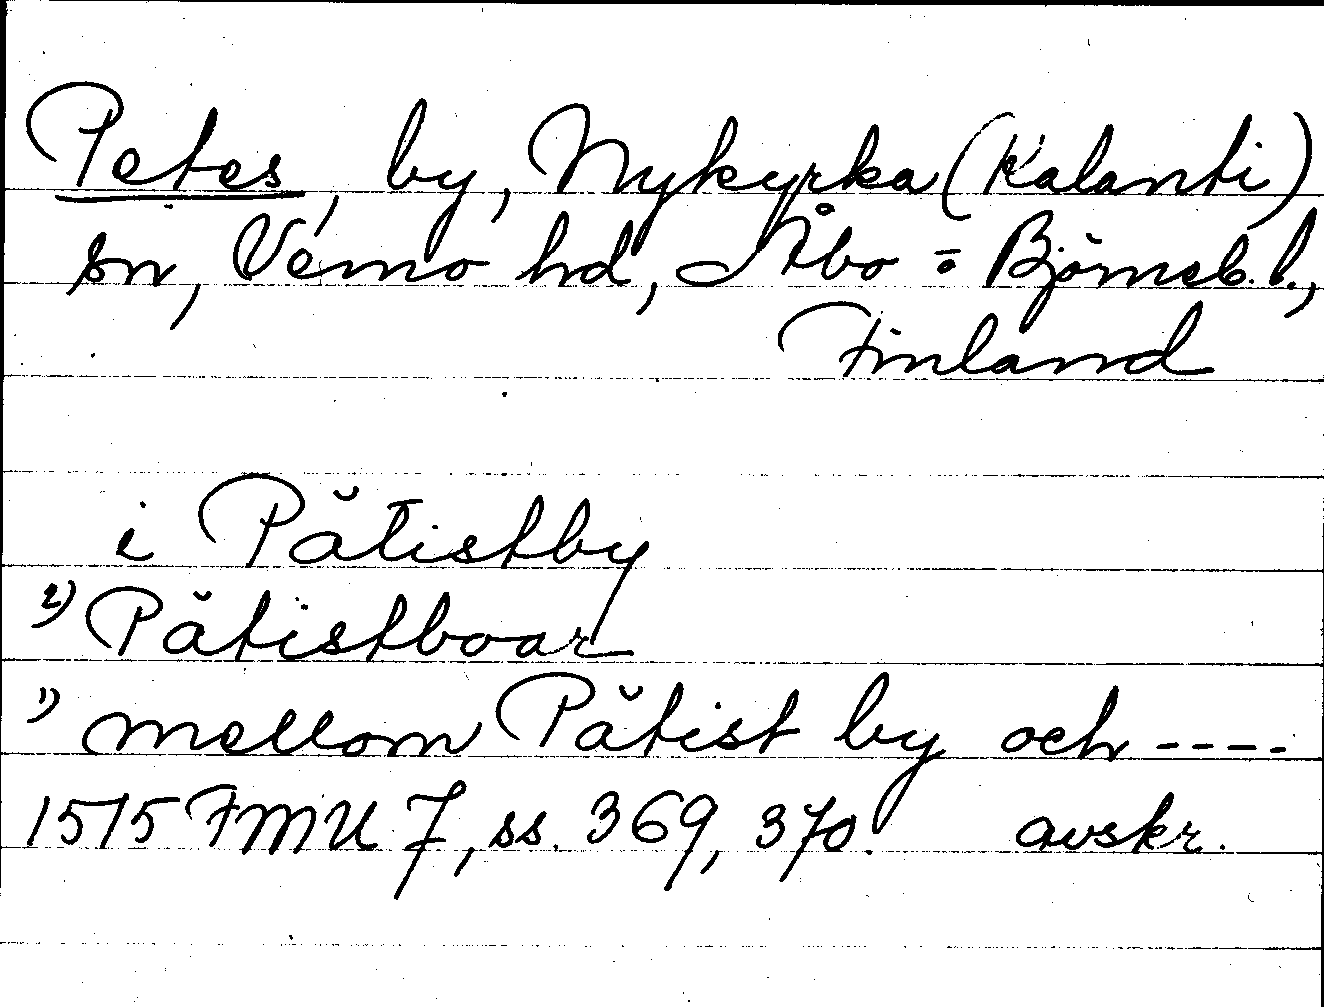 Petes, by, Nykyrka (Kalanti)
sn, Vemo hd, Åbo = Björneb. l.,
Finland
i Pătistby
2) Pătistboar
1) mellom Pătist by och ----
1515 FMU 7, ss. 369, 370. avskr.